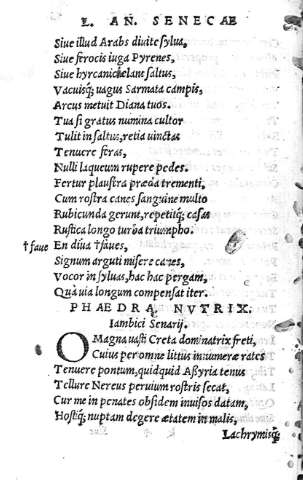 L. AN. SENECAE
Siue illud Arabs diuite sylua,
Siue ferocis iuga Pyrenes,
Siue hyrcani celant saltus,
Vacuisq; uagus Sarmata campis,
Arcus metuit Diana tuos.
Tua si gratus numina cultor
Tulit in saltus, retia uinctas
Tenuere feras,
Nulli laqueum rupere pedes.
Fertur plaustra præda trementi,
Cum rostra canes sanguine multo
Rubicunda gerunt, repetitq; casas
Rustica longo turba triumpho.
†faue En diua †faues,
Signum arguti misere canes,
Vocor in syluas, hac hac pergam,
Quà uia longum compensat iter.
PHAEDRA, NVTRIX.
Iambici Senarij.
O Magna uasti Creta dominatrix freti,
Cuius per omne littus innumeræ rates
Tenuere pontum, quidquid Aßyria tenus
Tellure Nereus peruium rostris secat,
Cur me in penates obsidem inuisos datam,
Hostiq; nuptam degere ætatem in malis,
Lachrymisq;